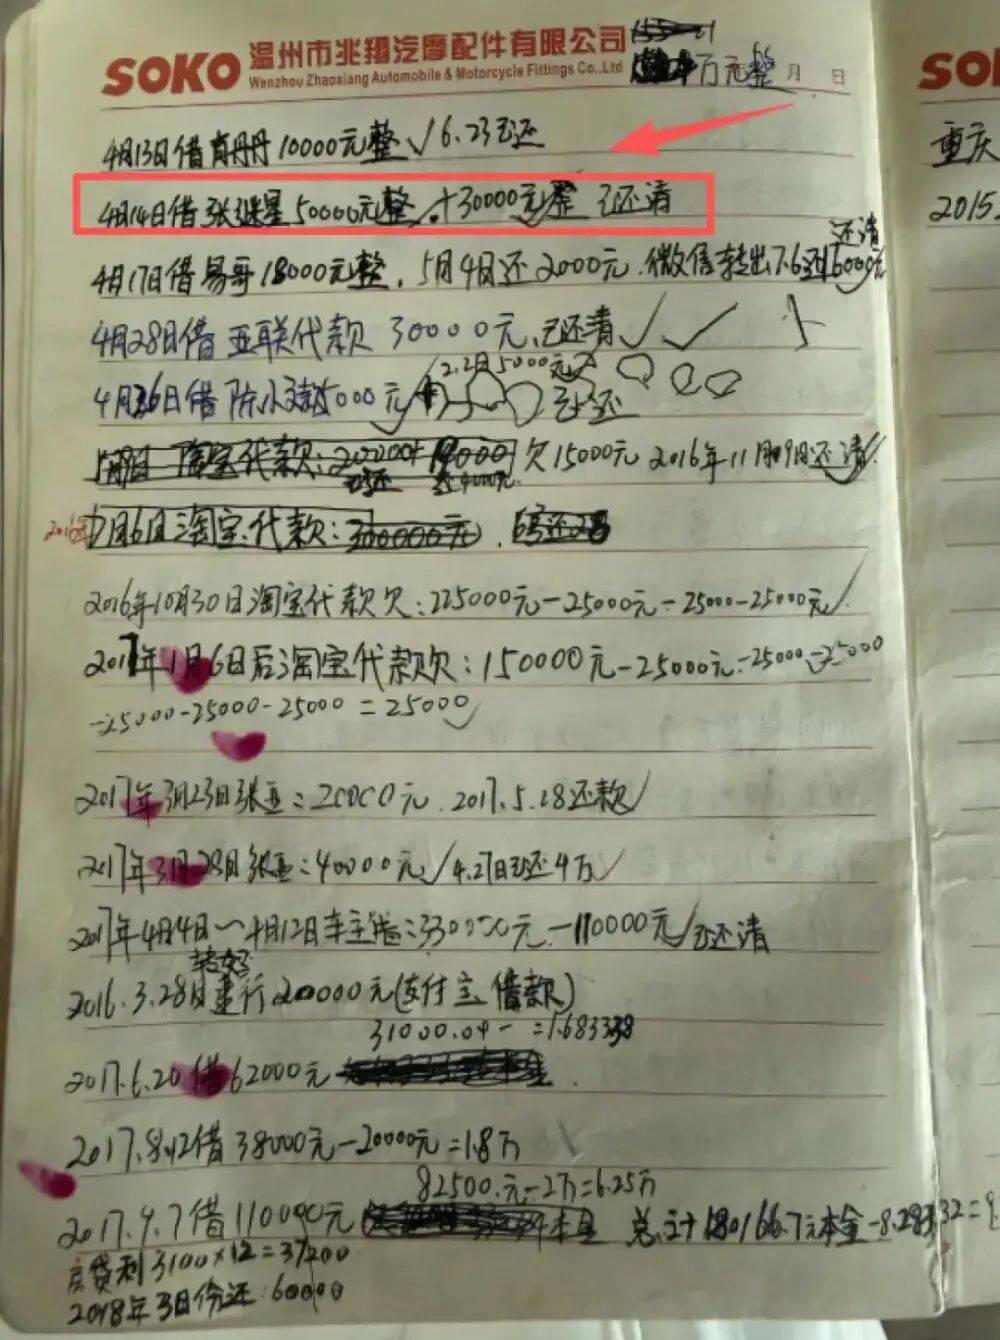 SOKO 温州市兆翔汽摩配件有限公司
Wenzhou Zhaoxiang Automobile & Motorcycle Fittings Co.,Ltd
万元整 月 日
4月13日借 丹丹 10000元整 √ 6.23已还
4月14日借张继星50000元整.+30000元整 已还清
还清
4月17日借易哥18000元整,5月4日还2000元.微信转出7.6还16000元
4月28日借亚联代款 30000元.已还清√ √
2.2月5000元
4月26日借陈小 5000元 已还
淘宝代款: 欠15000元 2016年11月09日还清
2016年
7月6日淘宝代款: 300000元.
2016年10月30日淘宝代款欠:225000元-25000元-25000-25000元√
2017年1月6日后淘宝代款欠:150000元-25000元-25000-25000
-25000-25000-25000=25000√
2017年3月23日张亚:20000元.2017.5.28还款√
2017年3月28日张亚:40000元√4.27日已还4万√
2017年4月4日~4月12日车主 :330000元-110000元√已还清
转好
2016.3.28日建行20000元(支付宝借款)
31000.04- =1.683338
2017.6.20借62000元
2017.8.12借38000元-20000元=1.8万
82500.元-2万=6.25万
2017.9.7借110000元 总计180166.7元本金-8.283332=9.
房贷利3100×12=37200
2018年3日份还:60000
SOKO
重庆
2015.